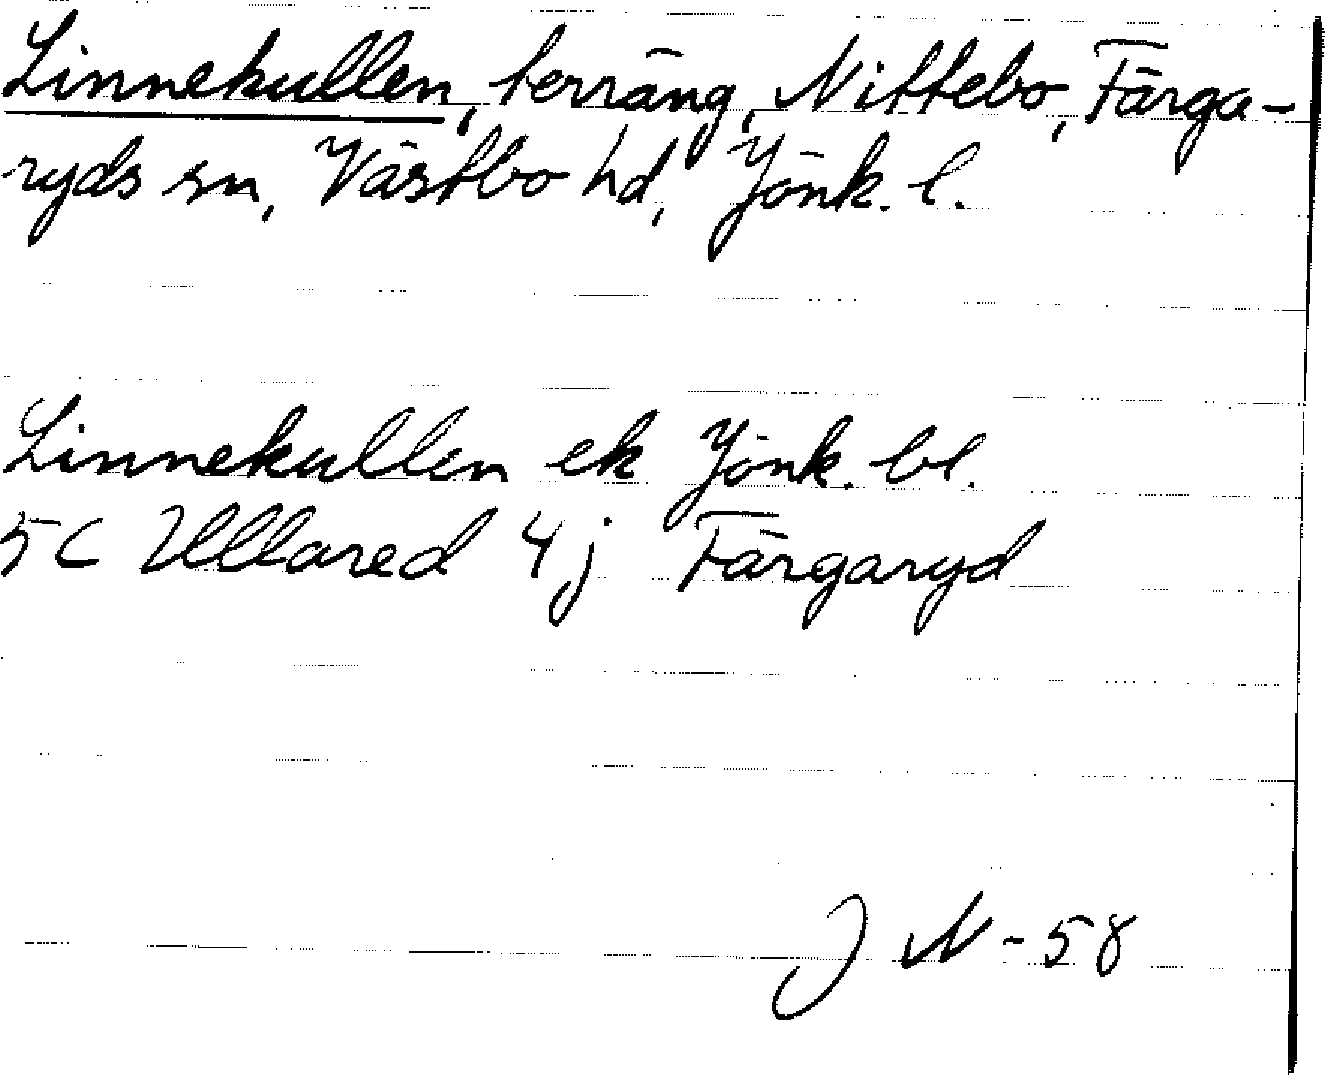 Linnekullen, terräng, Nittebo, Färga-
ryds sn, Västbo hd, Jönk. l.
Linnekullen ek Jönk. bl.
5C Ullared 4j Färgaryd
J N - 58